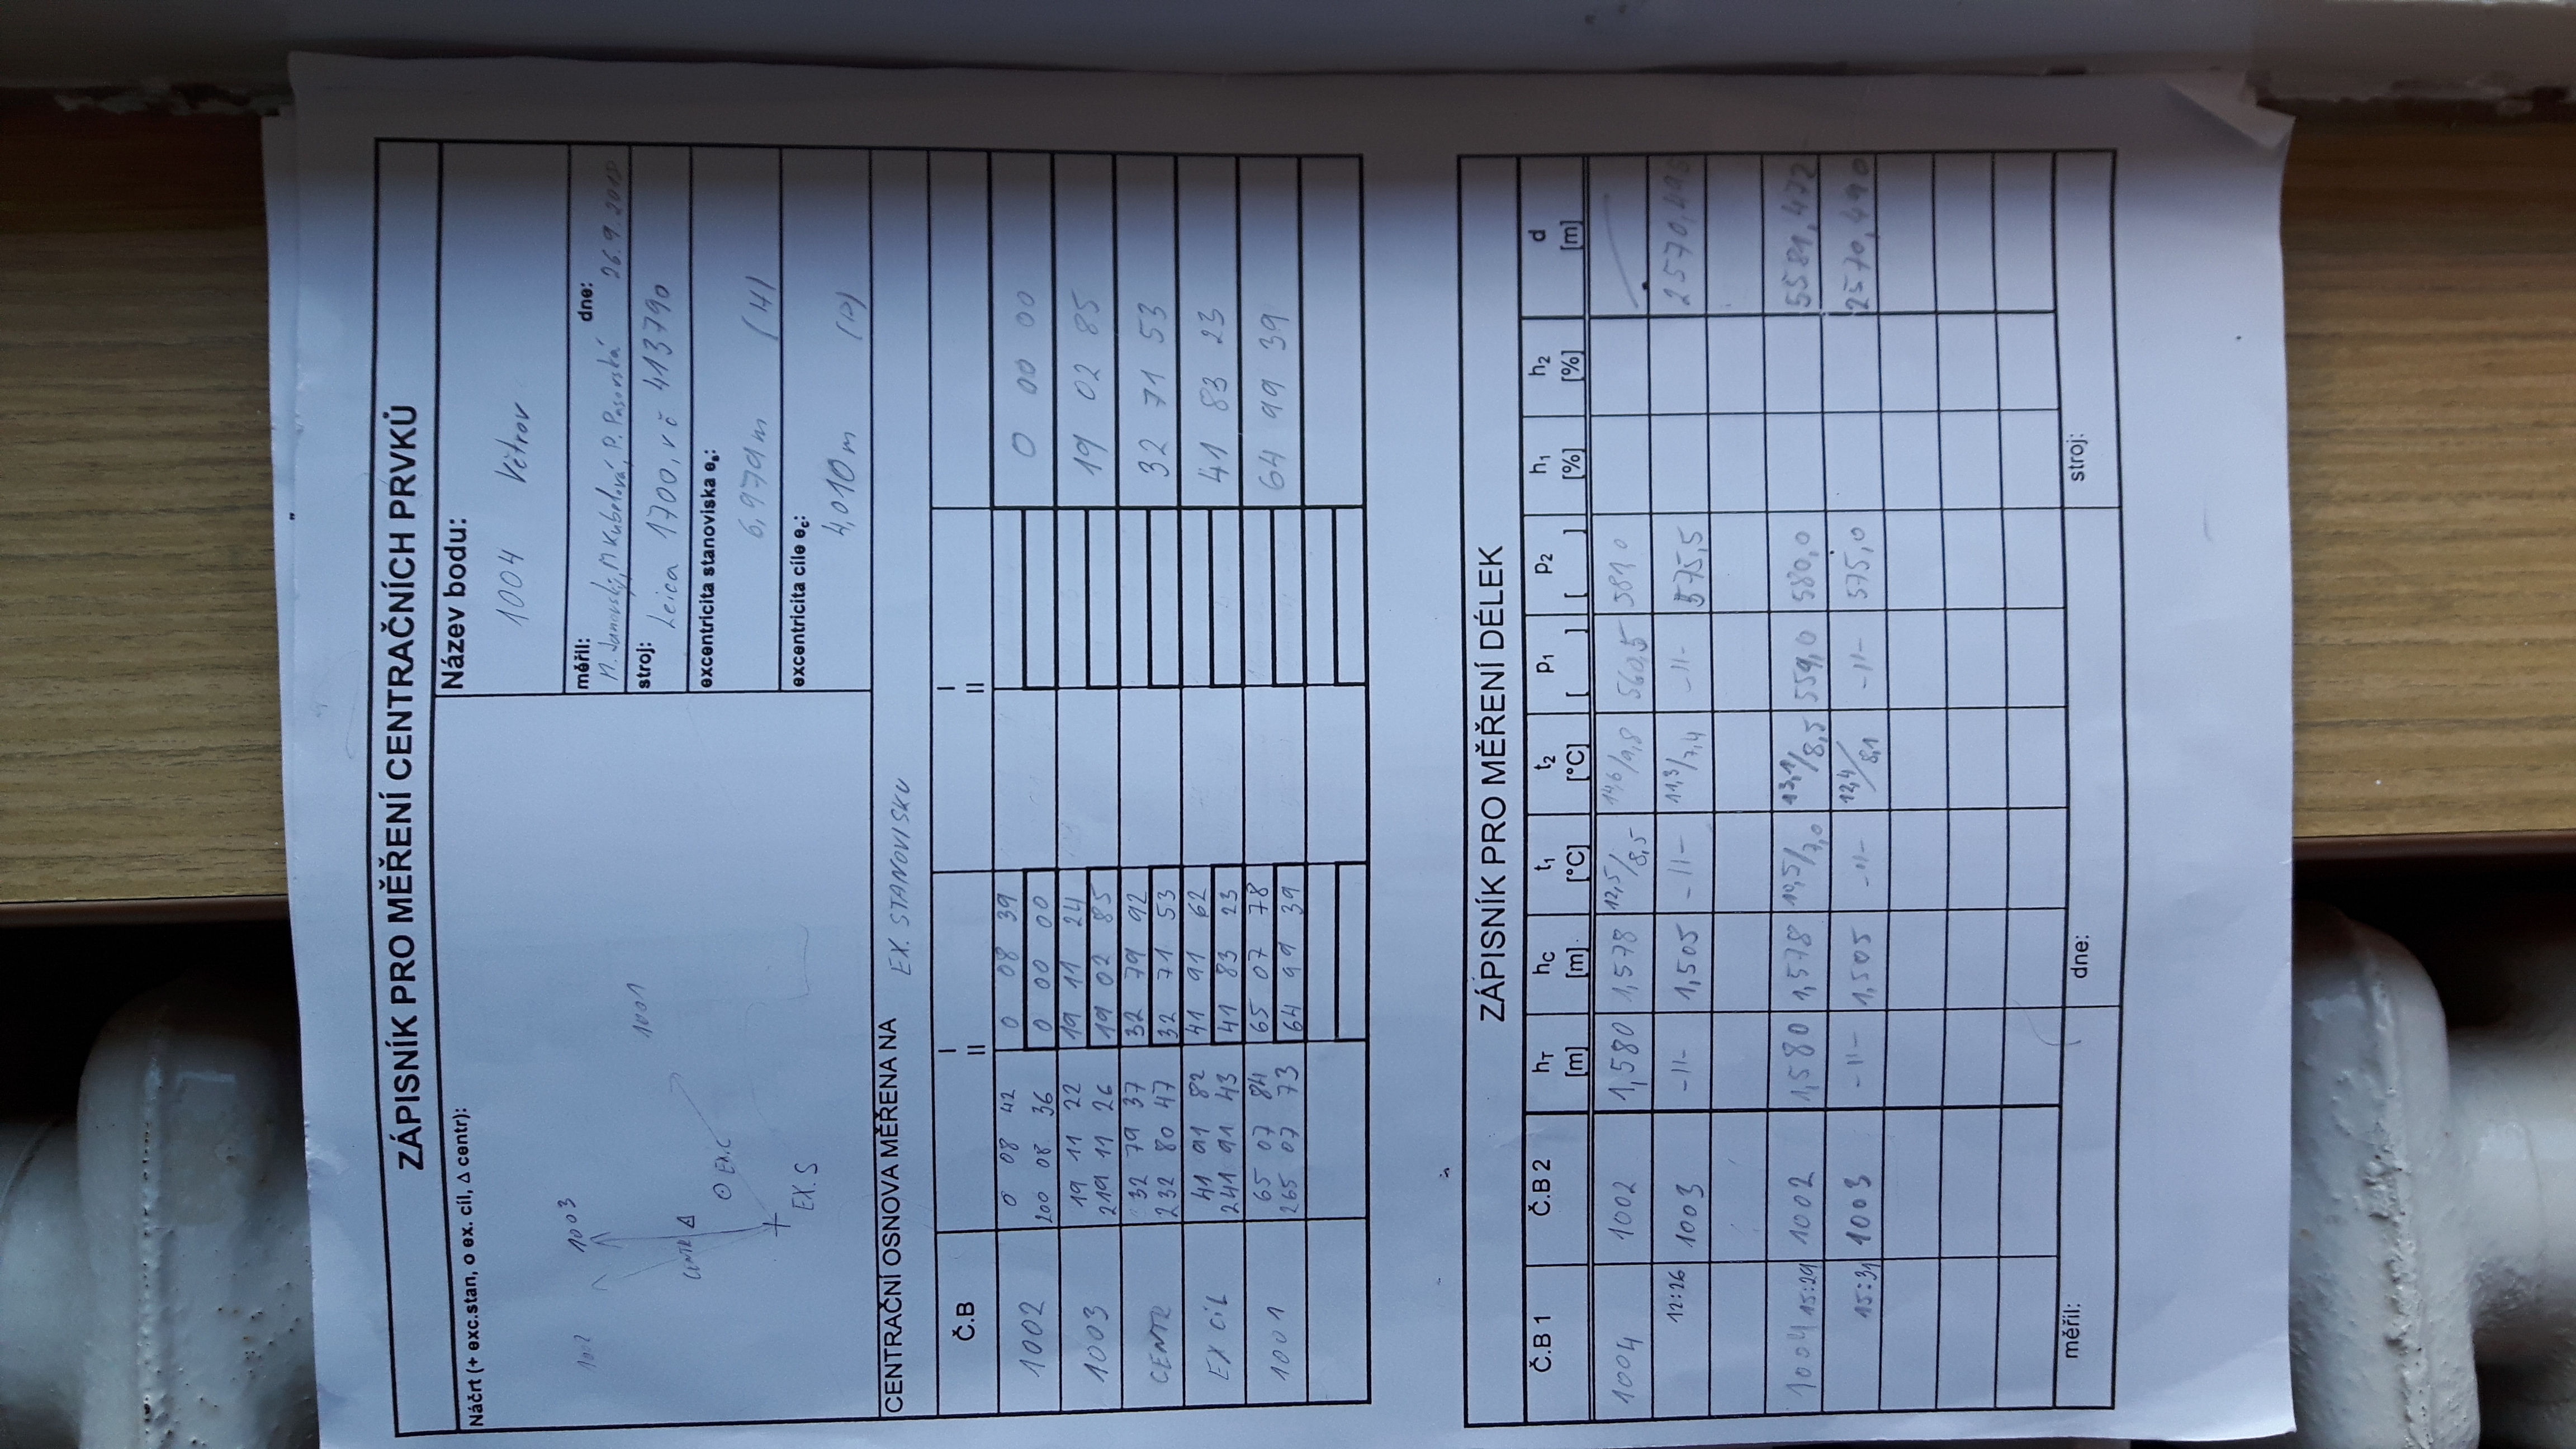 ZÁPISNÍK PRO MĚŘENÍ CENTRAČNÍCH PRVKŮ
Náčrt (+ exc.stan, o ex. cíl, Δ centr):
1002
1003
1001
CENTR Δ
EX.C
EX. S
Název bodu:
1004 Větrov
měřil: dne:
M. Janovský, M Kubelová, P. Pasovská 26.9.
stroj: Leica 1700, vč 413790
excentricita stanoviska es:
6,979m (H)
excentricita cíle ec:
4,010m
CENTRAČNÍ OSNOVA MĚŘENA NA EX. STANOVISKU
Č.B I II I II
1002 0 08 42 0 08 39 0 00 00
200 08 36 0 00 00
1003 19 11 22 19 11 24 19 02 85
219 11 26 19 02 85
CENTR 32 79 37 32 79 92 32 71 53
232 80 47 32 71 53
EX CÍL 41 91 82 41 91 62 41 83 23
241 91 43 41 83 23
1001 65 07 84 65 07 78 64 99 39
265 07 73 64 99 39
ZÁPISNÍK PRO MĚŘENÍ DÉLEK
Č.B 1 Č.B 2 hT hC t1 t2 p1 p2 h1 h2 d
[m] [m] [°C] [°C] [ ] [ ] [%] [%] [m]
1004 1002 1,580 1,578 12,5/8,5 14,6/9,8 560,5 581,0
12:26 1003 -11- 1,505 -11- 11,3/7,4 -11- 575,5 2570,495
1004 15:29 1002 1,580 1,578 10,5/7,0 13,1/8,5 559,0 580,0 5581,472
15:31 1003 -11- 1,505 -11- 12,4/8,1 -11- 575,0 2570,490
měřil: dne: stroj: